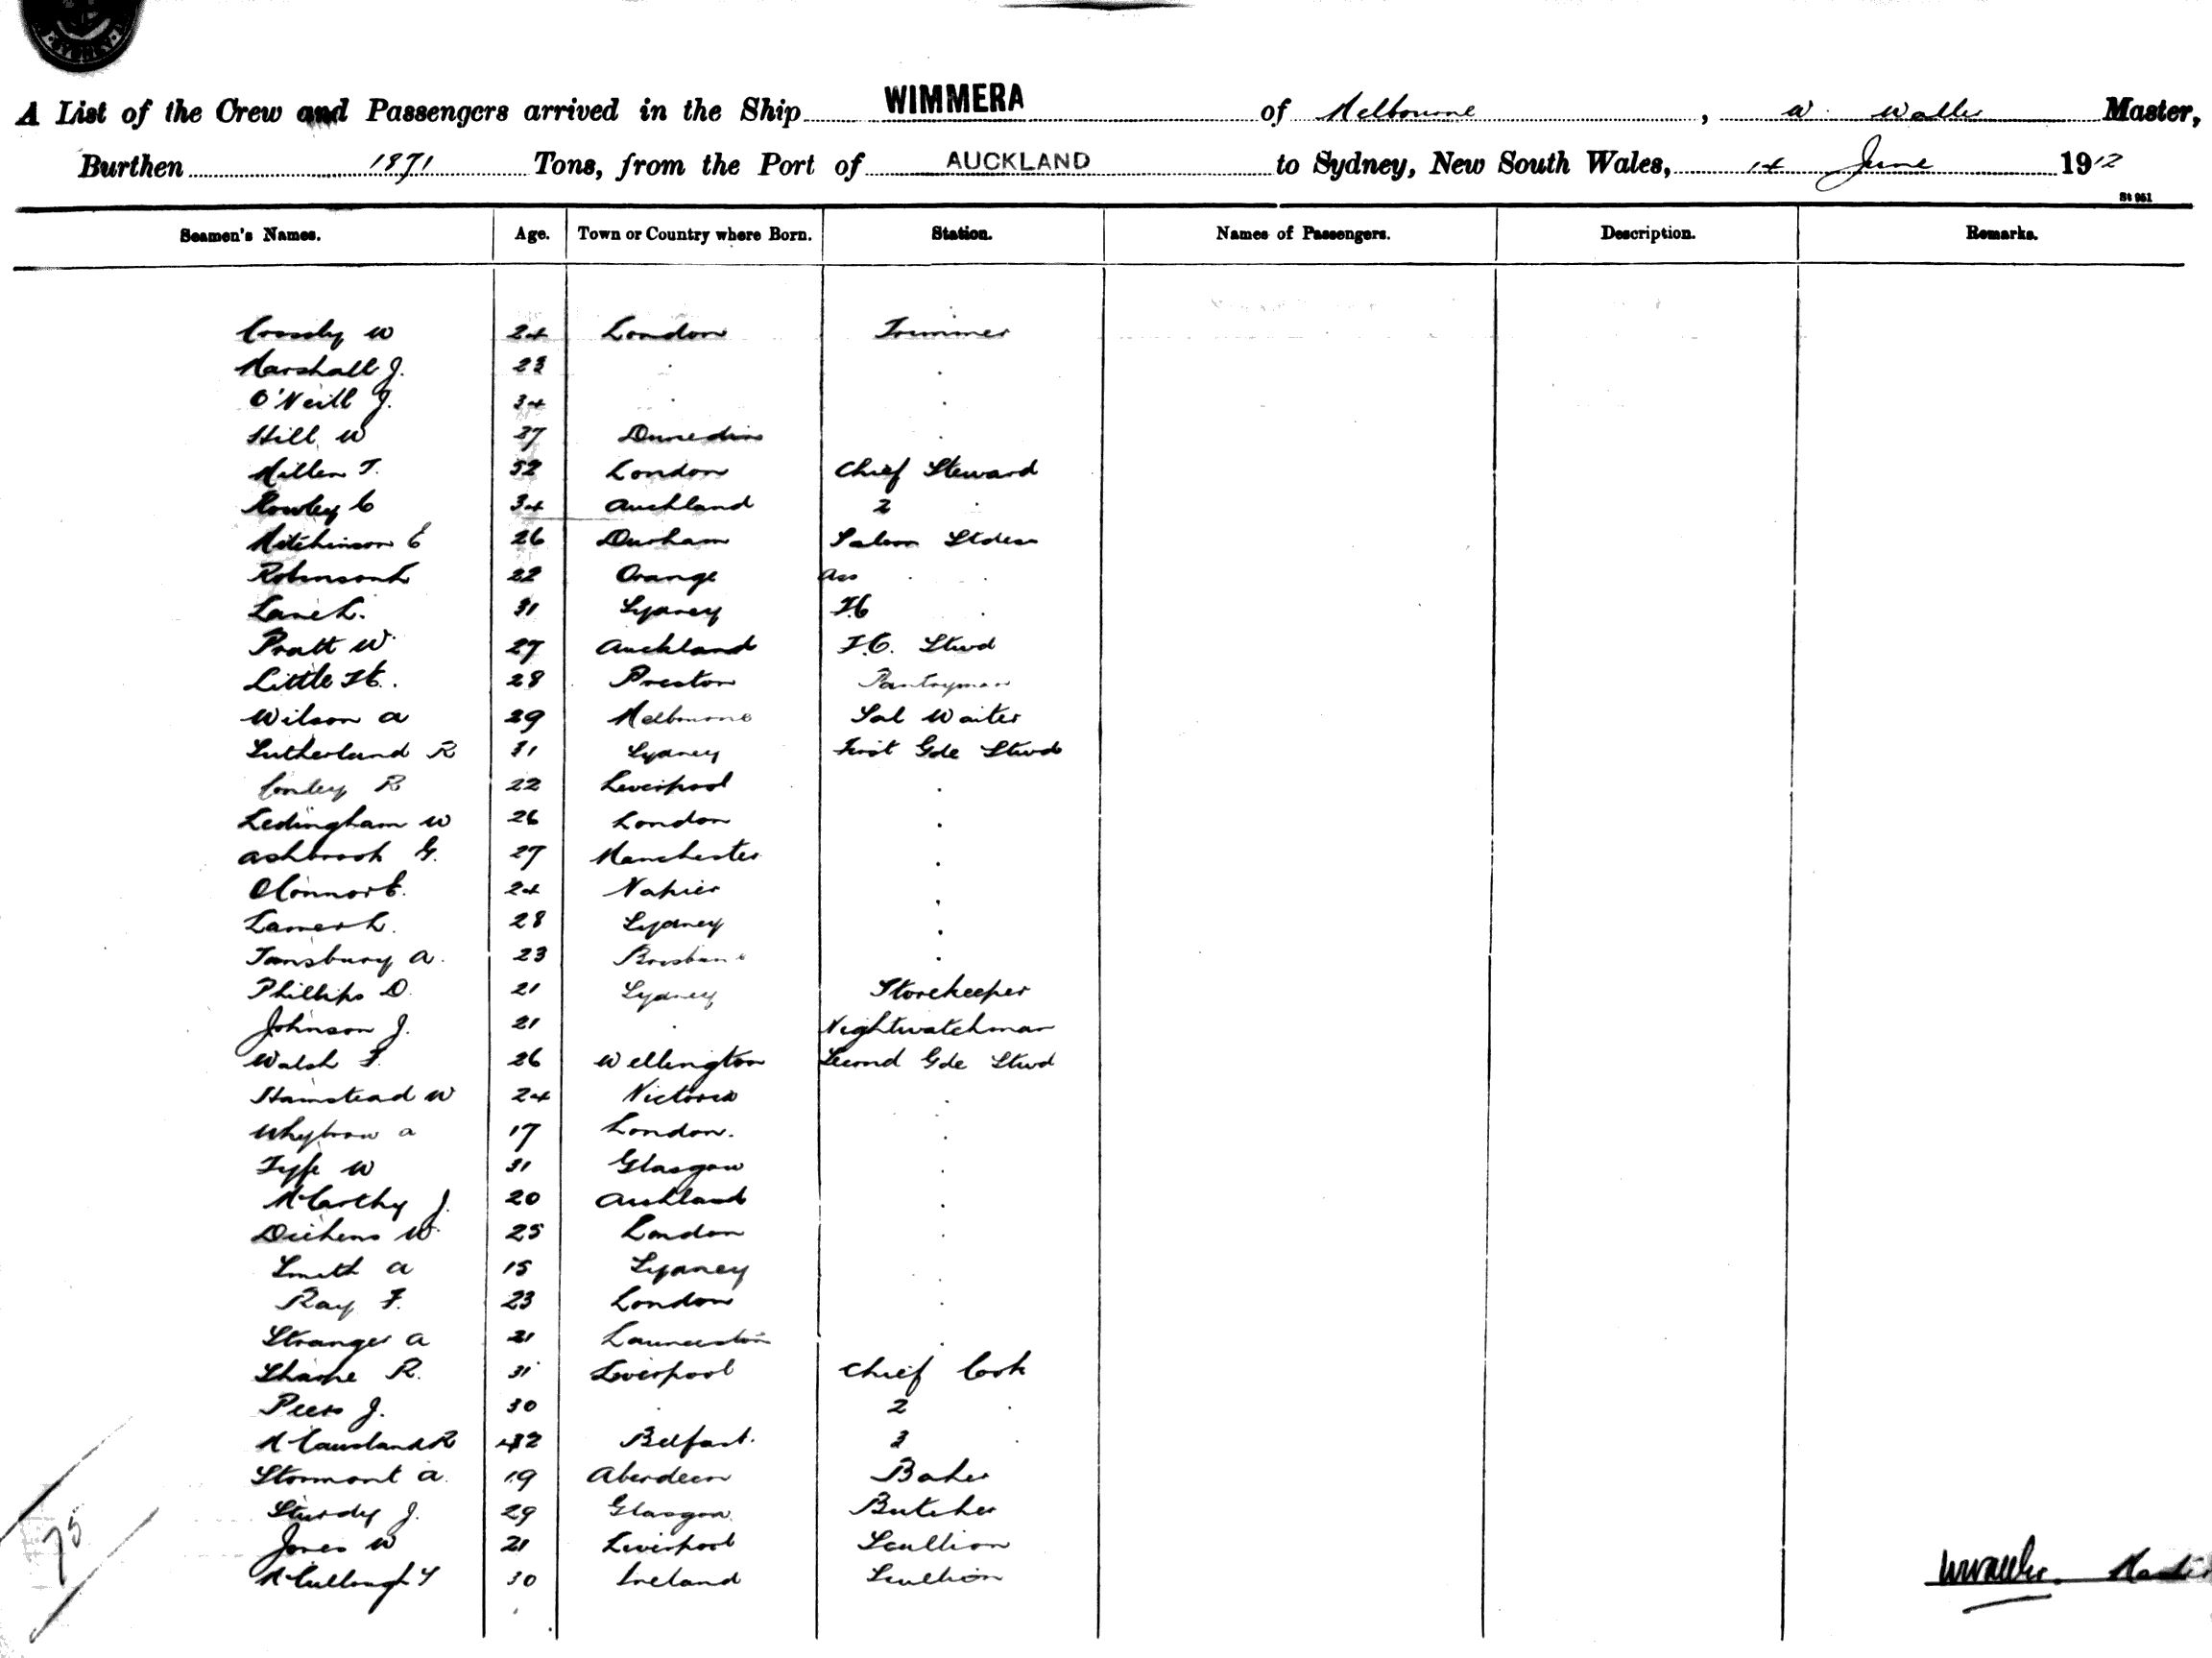 A List of the Crew and Passengers arrived in the Ship WIMMERA of Melbourne, W. Waller Master,
Burthen 1871 Tons, from the Port of AUCKLAND to Sydney, New South Wales, 14 June 1912
St 951
Seamen's Names. Age. Town or Country where Born. Station. Names of Passengers. Description. Remarks.
Crossly W 24 London Trimmer
Marshall J. 23 . .
O'Neill J. 34 . .
Hill W 37 Dunedin .
Millen T. 52 London Chief Steward
Rowley C 34 Auckland 2 .
Mitchinson E 26 Durham Saloon Stdess
Robinson L 22 Orange Ass . .
Lane L. 31 Sydney F.C .
Pratt W. 27 Auckland F.C. Stwd
Little H. 28 Preston Pantryman
Wilson A 29 Melbourne Sal Waiter
Sutherland R 31 Sydney First Gde Stwd
Conley R 22 Liverpool .
Ledingham W 26 London .
Ashbrook G. 27 Manchester .
OConnor E. 24 Napier .
Lamer L. 28 Sydney .
Tansbury A. 23 Brisbane .
Phillips D. 21 Sydney Storekeeper
Johnson J. 21 . Nightwatchman
Walsh F. 26 Wellington Second Gde Stwd
Hamstead W 24 Victoria .
Whybrow A 17 London. .
Fyfe W 31 Glasgow .
McCarthy J. 20 Auckland .
Dickens W. 25 London .
Smith A 15 Sydney .
Ray F. 23 London .
Stranger A 21 Launceston .
Sharpe R. 31 Liverpool Chief Cook
Peers J. 30 . 2 .
McCausland R 42 Belfast. 3 .
Stormont A. 19 Aberdeen Baker
Sturdy J. 29 Glasgow Butcher
Jones W 21 Liverpool Scullion
McCullough 30 Ireland Scullion
75
W Waller. Master